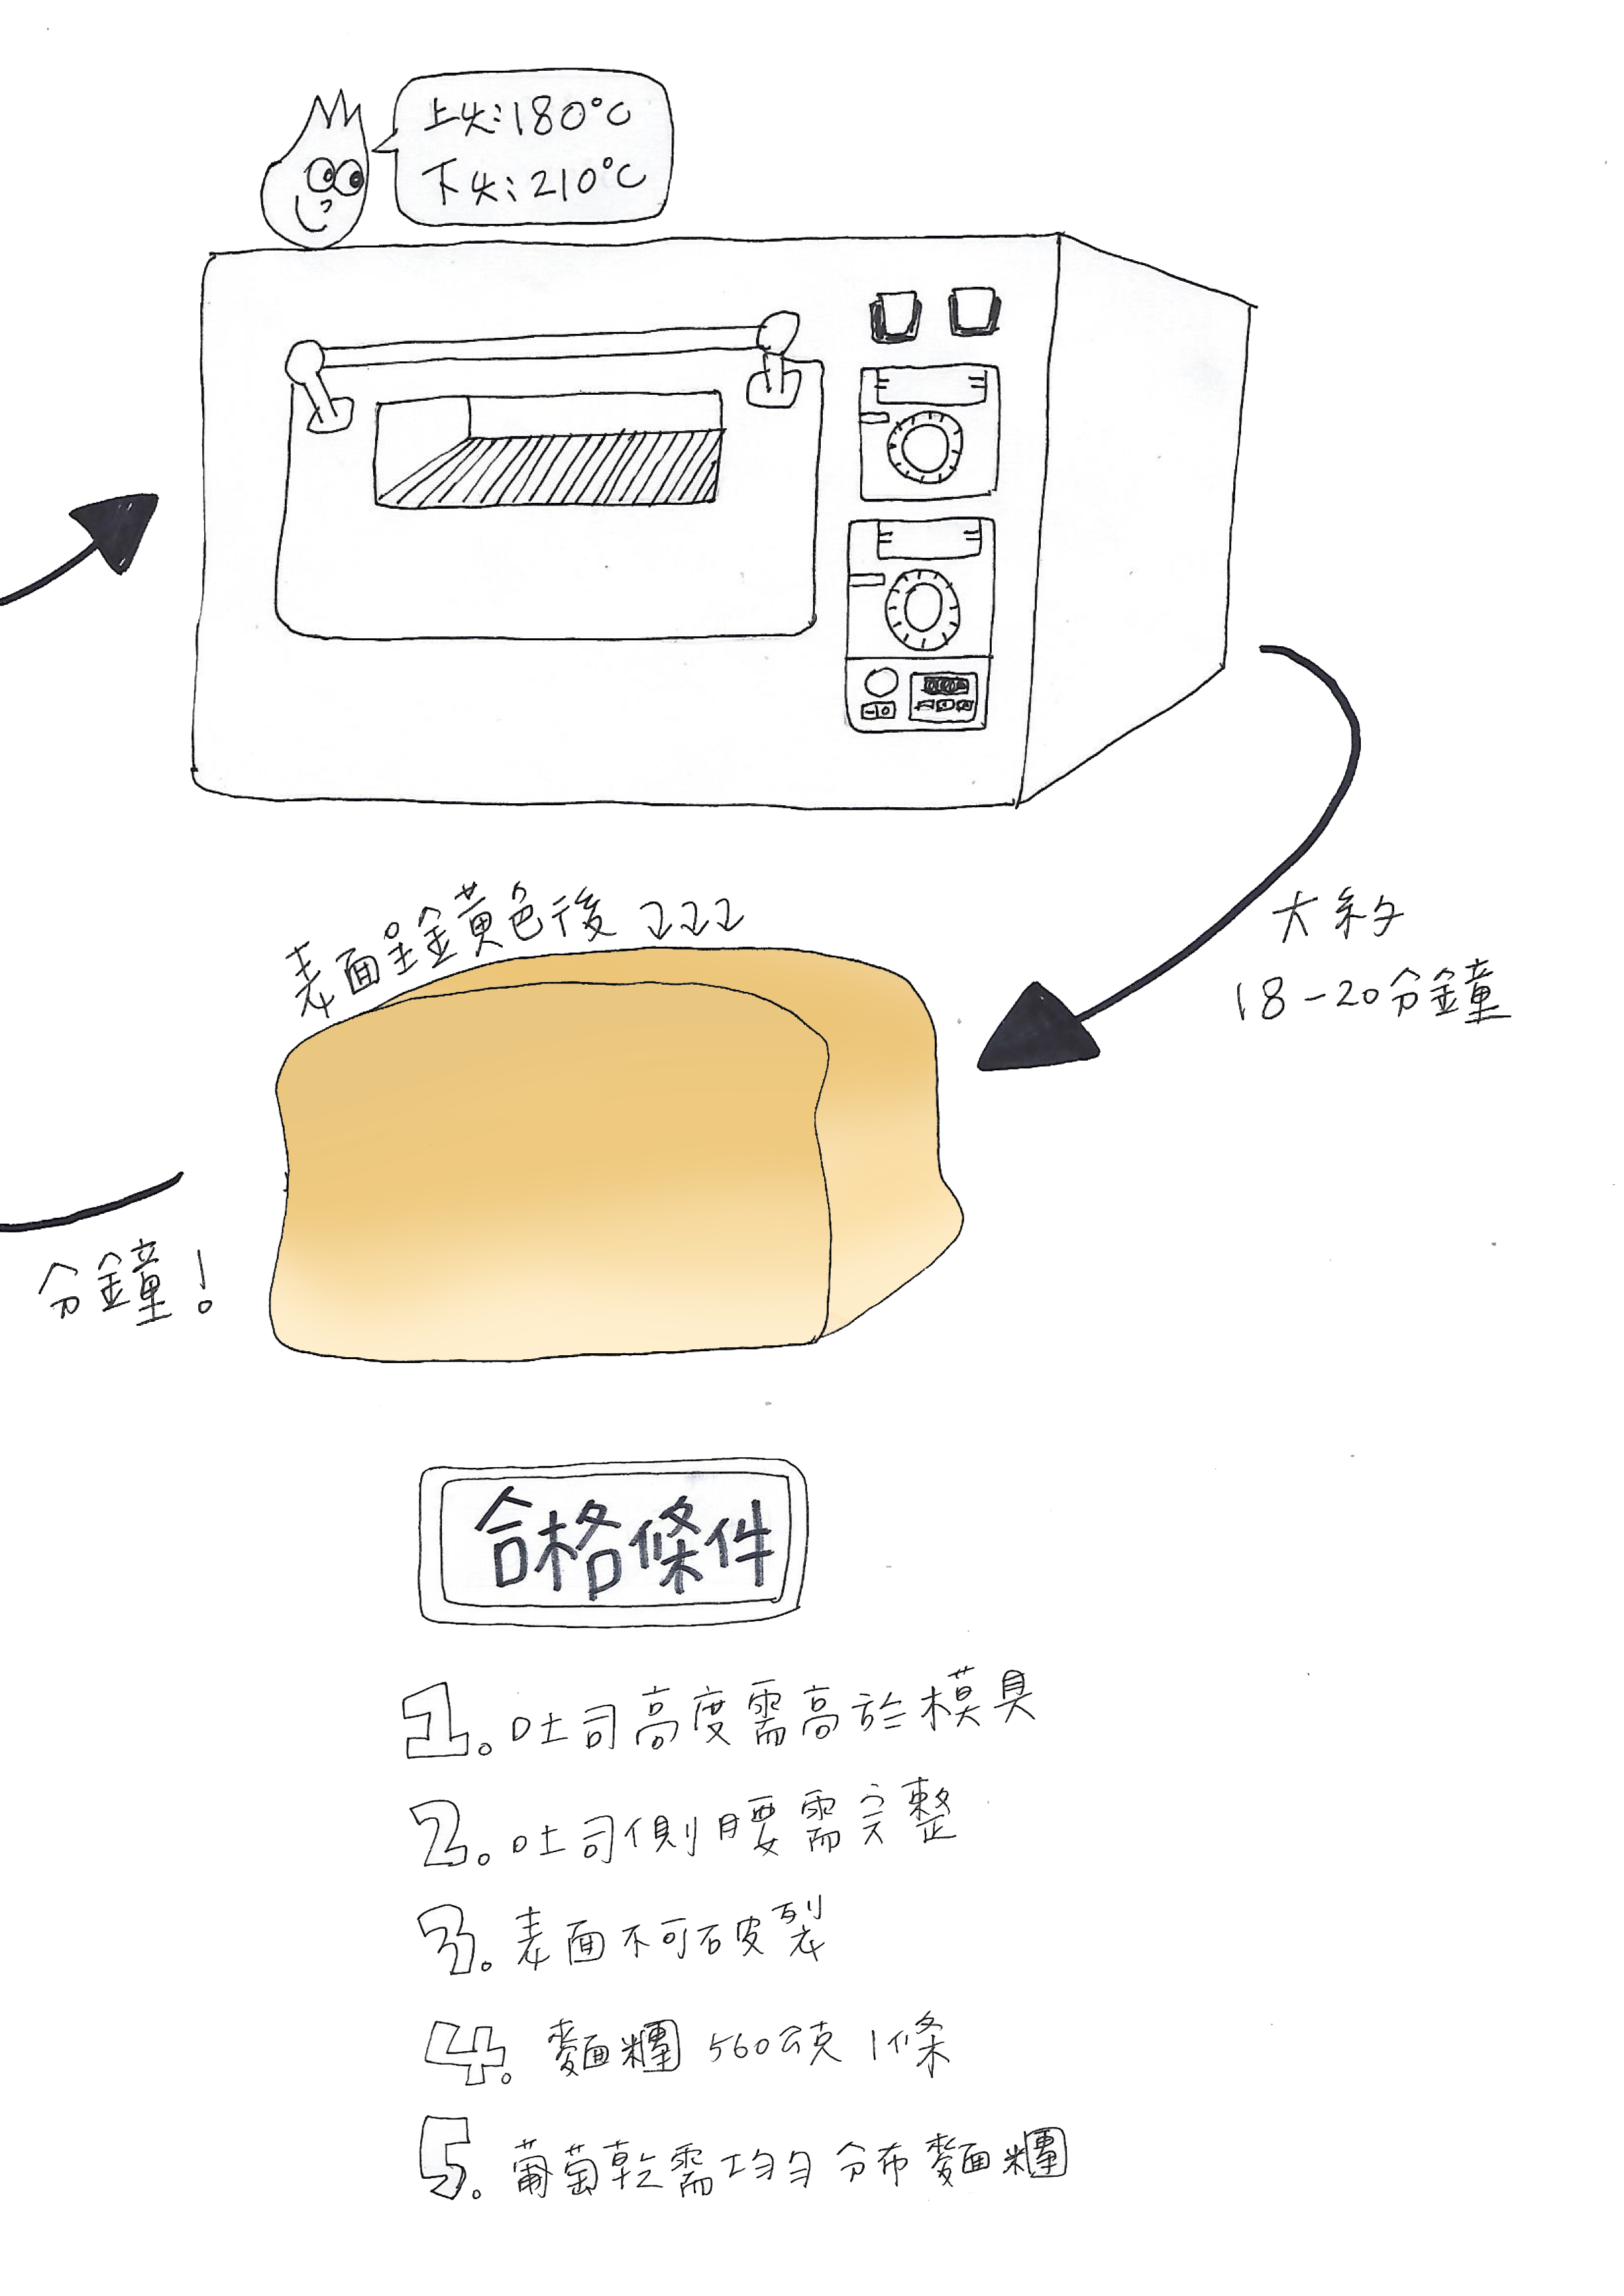 上火:180°C
下火:210°C
表面呈金黃色後
大約
18-20分鐘
分鐘!
合格條件
1.吐司高度需高於模具
2.吐司側腰需完整
3.表面不可破裂
4.麵糰 560公克 1條
5.葡萄乾需均勻分布麵糰